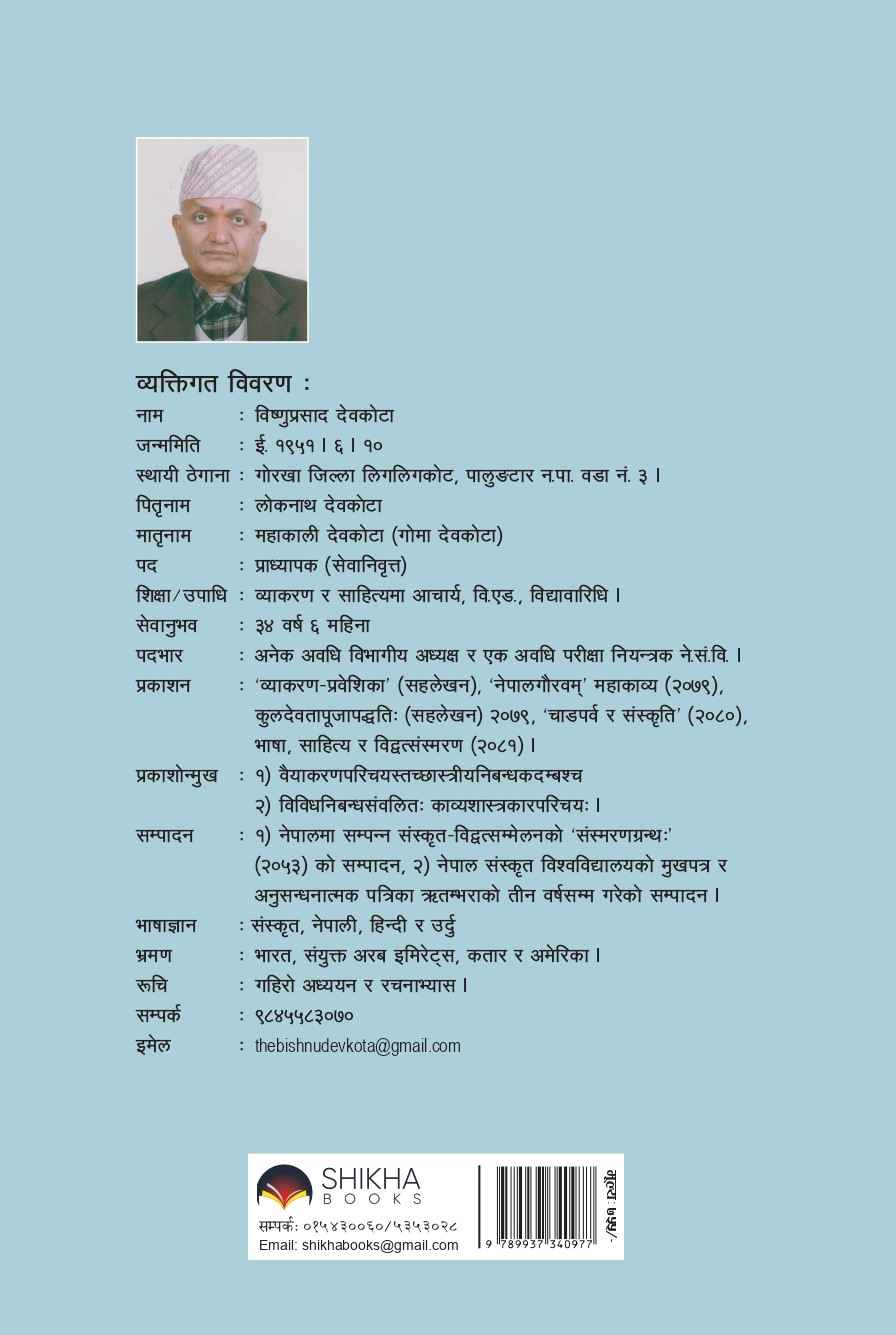 व्यक्तिगत विवरण :
नाम : विष्णुप्रसाद देवकोटा
जन्ममिति : ई. १९५१ । ६ । १०
स्थायी ठेगाना : गोरखा जिल्ला लिगलिगकोट, पालुङटार न.पा. वडा नं. ३ ।
पितृनाम : लोकनाथ देवकोटा
मातृनाम : महाकाली देवकोटा (गोमा देवकोटा)
पद : प्राध्यापक (सेवानिवृत्त)
शिक्षा/उपाधि : व्याकरण र साहित्यमा आचार्य, वि.एड., विद्यावारिधि ।
सेवानुभव : ३४ वर्ष ६ महिना
पदभार : अनेक अवधि विभागीय अध्यक्ष र एक अवधि परीक्षा नियन्त्रक ने.सं.वि. ।
प्रकाशन : ‘व्याकरण-प्रवेशिका’ (सहलेखन), ‘नेपालगौरवम्’ महाकाव्य (२०७९),
कुलदेवतापूजापद्धतिः (सहलेखन) २०७९, ‘चाडपर्व र संस्कृति’ (२०८०),
भाषा, साहित्य र विद्वत्संस्मरण (२०८१) ।
प्रकाशोन्मुख : १) वैयाकरणपरिचयस्तच्छास्त्रीयनिबन्धकदम्बश्च
२) विविधनिबन्धसंवलितः काव्यशास्त्रकारपरिचयः ।
सम्पादन : १) नेपालमा सम्पन्न संस्कृत-विद्वत्सम्मेलनको ‘संस्मरणग्रन्थः’
(२०५३) को सम्पादन, २) नेपाल संस्कृत विश्वविद्यालयको मुखपत्र र
अनुसन्धनात्मक पत्रिका ऋतम्भराको तीन वर्षसम्म गरेको सम्पादन ।
भाषाज्ञान : संस्कृत, नेपाली, हिन्दी र उर्दु
भ्रमण : भारत, संयुक्त अरब इमिरेट्स, कतार र अमेरिका ।
रूचि : गहिरो अध्ययन र रचनाभ्यास ।
सम्पर्क : ९८४५५८३०७०
इमेल : thebishnudevkota@gmail.com
SHIKHA
BOOKS
सम्पर्क: ०१५४३००६०/५३५३०२८
Email: shikhabooks@gmail.com
9 789937 340977
मूल्यः ७५५/-